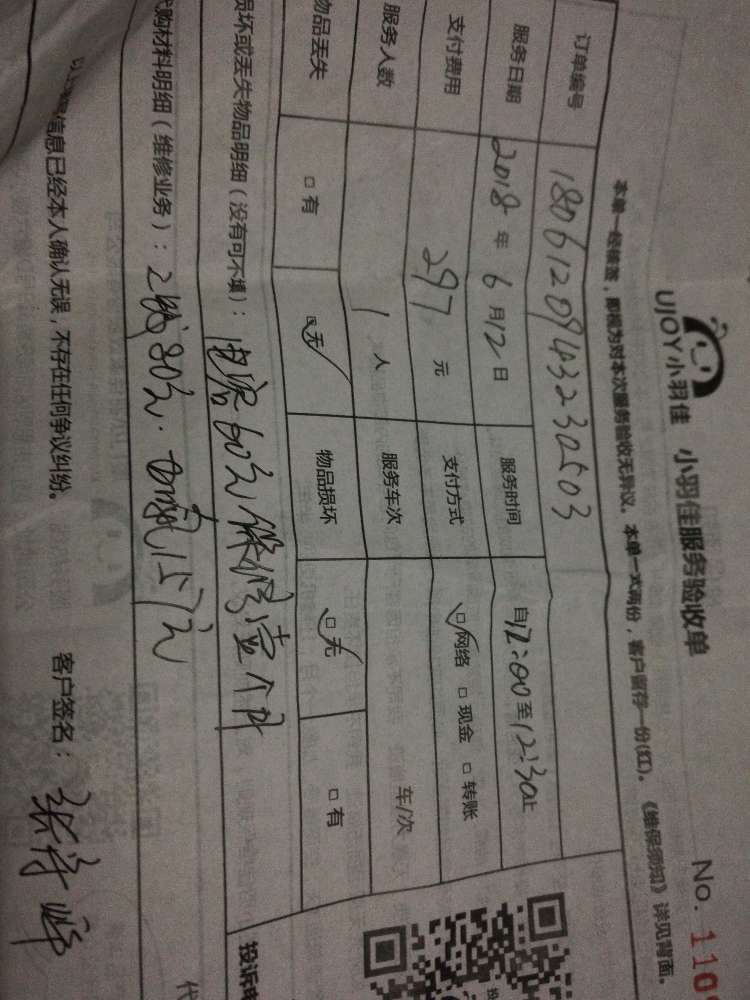 UJOY小羽佳 小羽佳服务验收单 No. 110
本单一经签署，即视为对本次服务验收无异议。本单一式两份，客户留存一份(红)。《维保须知》详见背面。
订单编号 180612094323503
服务日期 2018 年 6 月 12 日 服务时间 自12:00至12:30止
支付费用 297 元 支付方式 网络 □ 现金 □ 转账
服务人数 1 人 服务车次 车/次
物品丢失 □ 有 无 物品损坏 □ 无 □ 有
损坏或丢失物品明细（没有可不填）： 电源60元 保修壹个月
代购材料明细（维修业务）： 80元. 157元
信息已经本人确认无误，不存在任何争议纠纷。 客户签名：
投诉
代